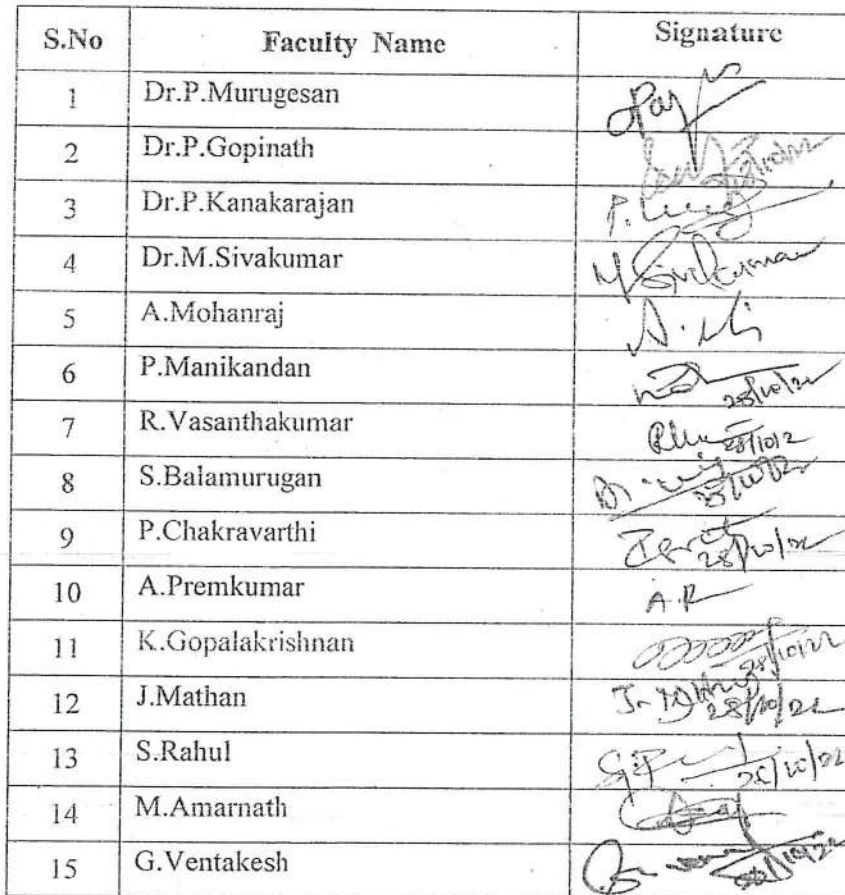 S.No Faculty Name Signature
1 Dr.P.Murugesan
2 Dr.P.Gopinath
3 Dr.P.Kanakarajan P.
4 Dr.M.Sivakumar M Sivakumar
5 A.Mohanraj A.
6 P.Manikandan 28/10/22
7 R.Vasanthakumar 28/10/2
8 S.Balamurugan
9 P.Chakravarthi 28/10/22
10 A.Premkumar A.P
11 K.Gopalakrishnan 28/10/22
12 J.Mathan 28/10/22
13 S.Rahul
14 M.Amarnath
15 G.Ventakesh